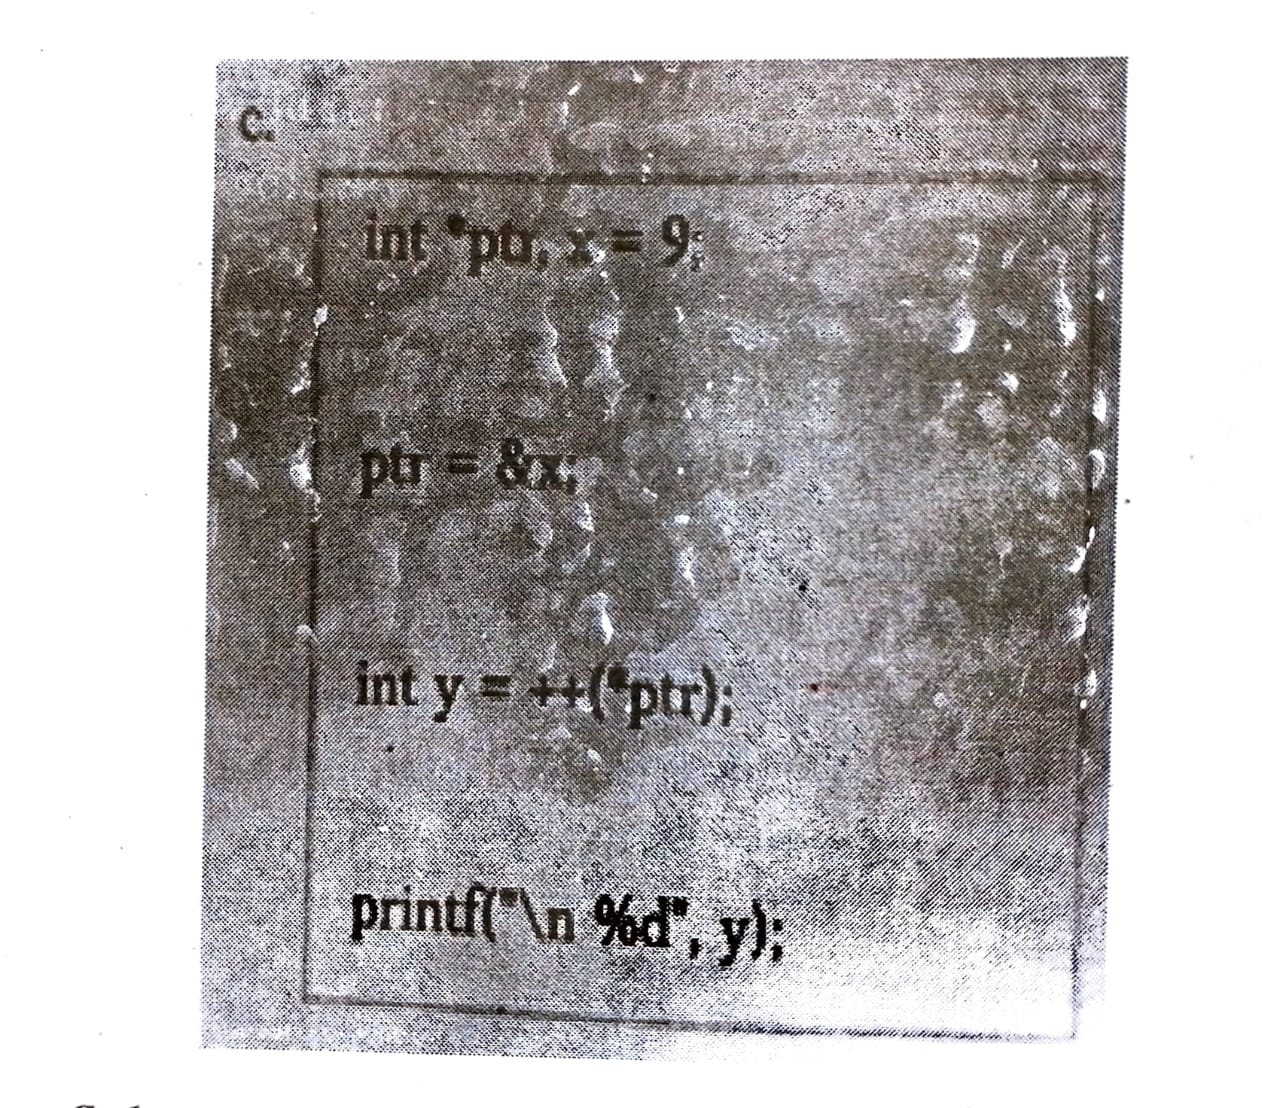 c.
int *ptr, x = 9;
ptr = &x;
int y = ++(*ptr);
printf("\n %d", y);